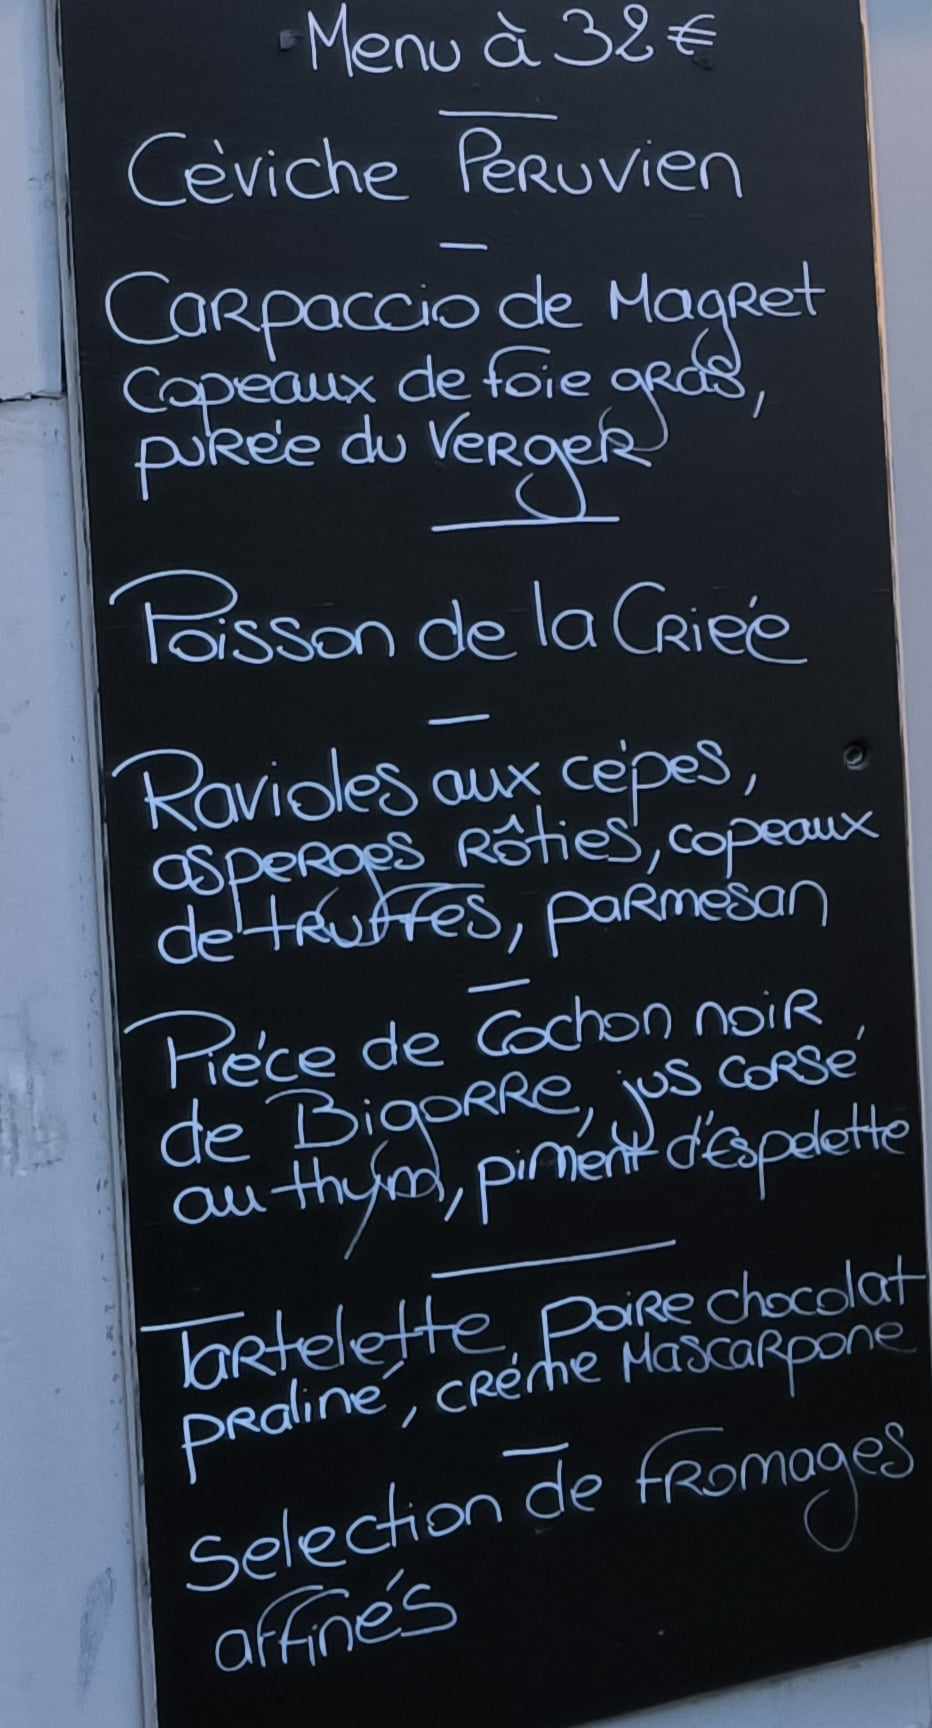 Menu à 32€
Céviche Peruvien
Carpaccio de Magret
copeaux de foie gras,
purée du verger
Poisson de la Criée
Ravioles aux cépes,
asperges rôties, copeaux
de truffes, parmesan
Piéce de Cochon noir
de Bigorre, jus corsé
au thym, piment d'Espelette
Tartelette poire chocolat
praliné, créme Mascarpone
Selection de fromages
affinés